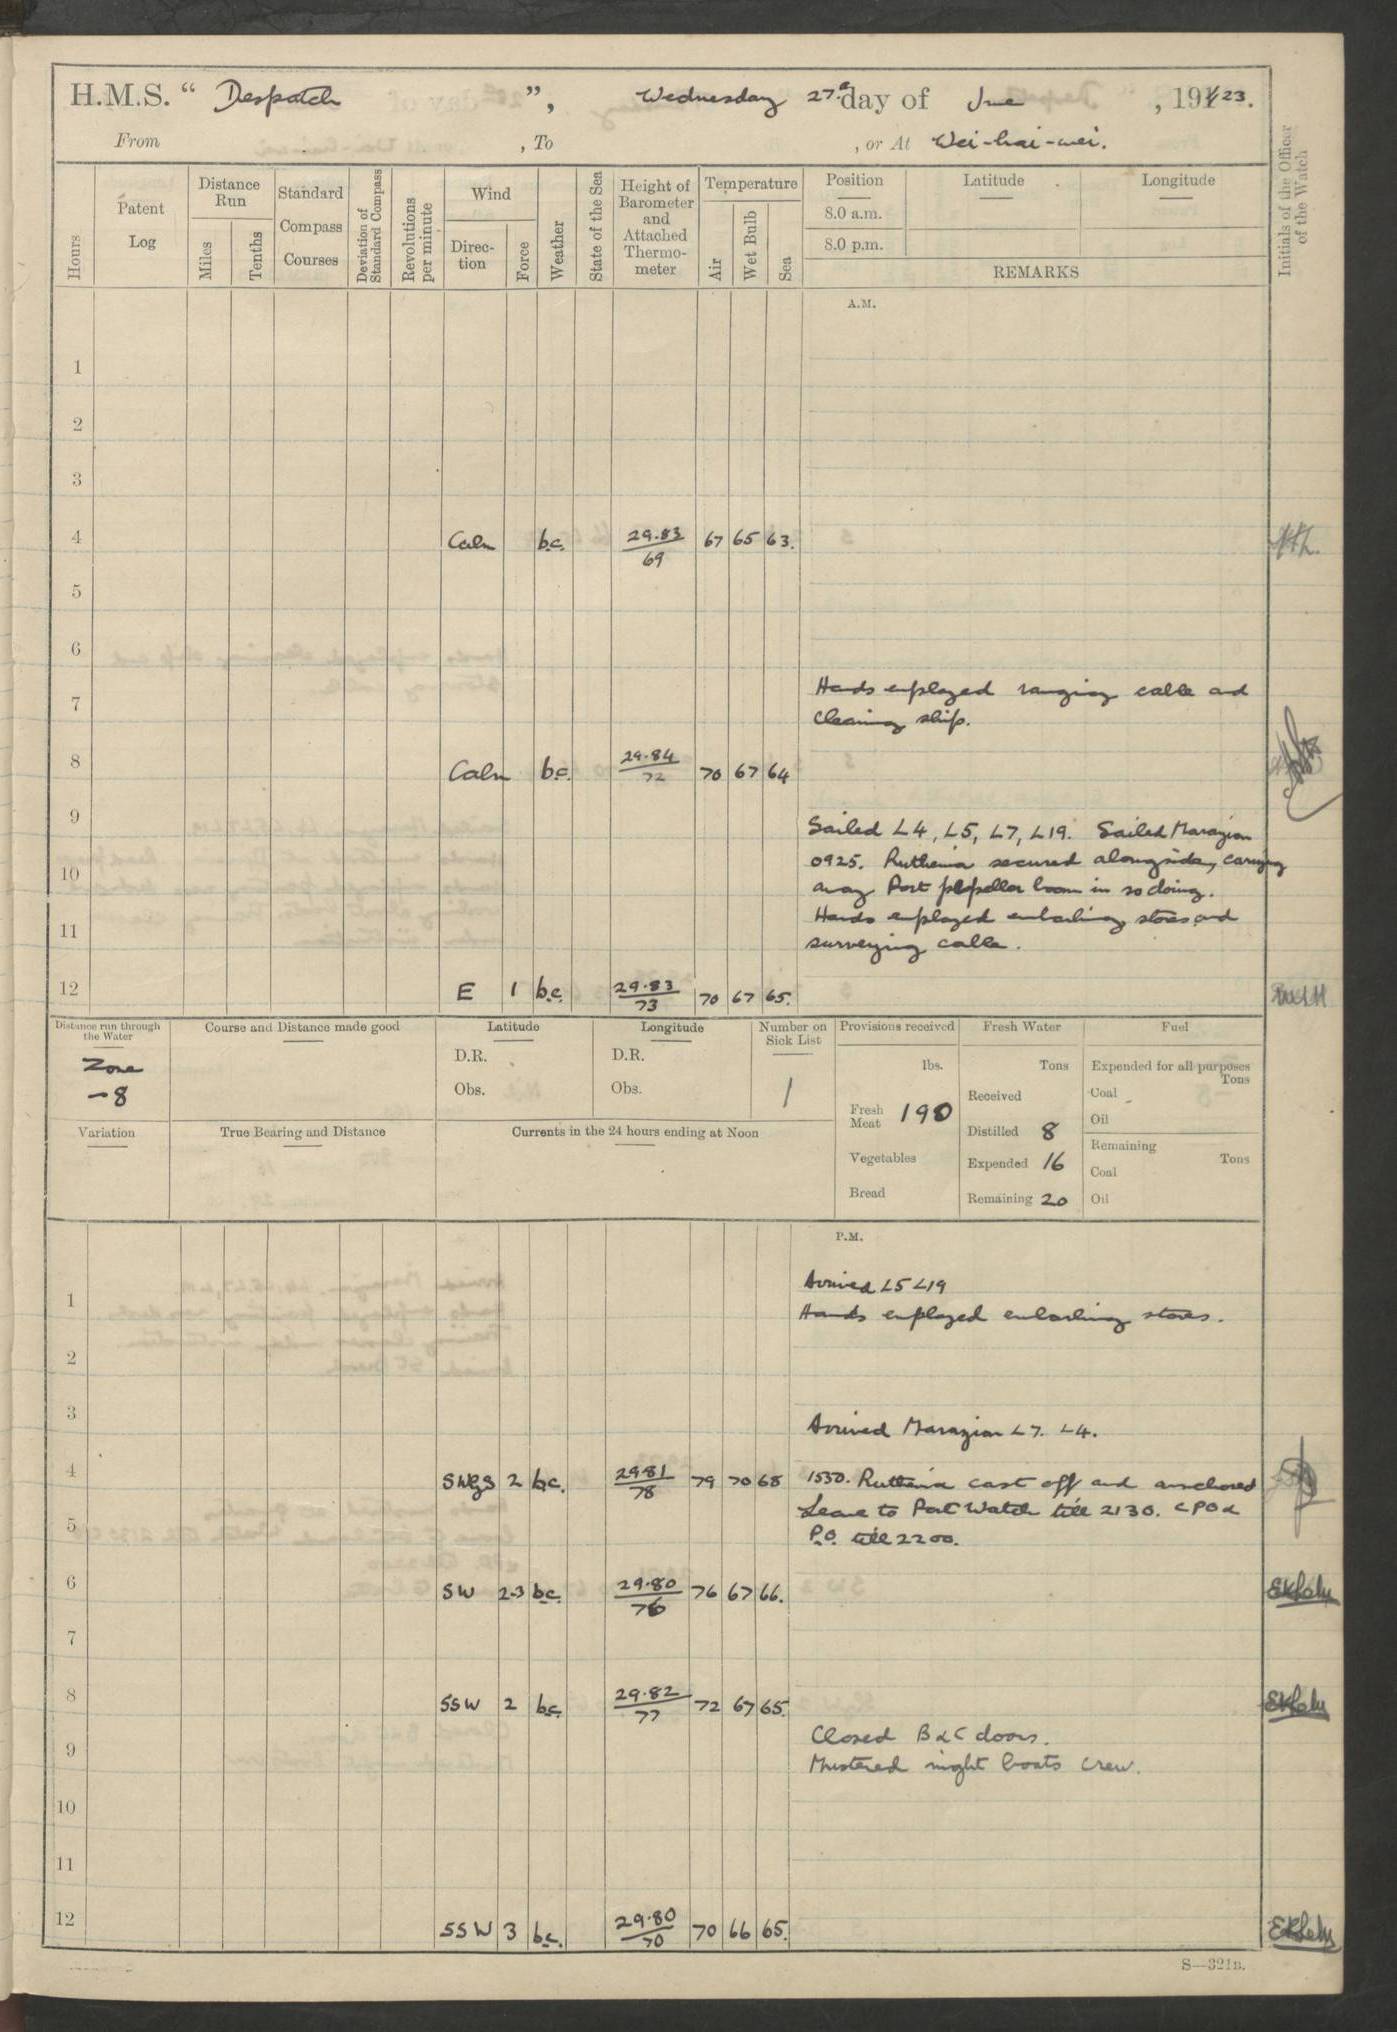 H.M.S. “ Despatch ”, Wednesday 27th day of June , 1923.
From , To , or At Wei-hai-wei.
Hours
Patent Log
Distance Run
Miles
Tenths
Standard Compass Courses
Deviation of Standard Compass
Revolutions per minute
Wind
Direc- tion
Force
Weather
State of the Sea
Height of Barometer and Attached Thermo- meter
Temperature
Air
Wet Bulb
Sea
Position
8.0 a.m.
8.0 p.m.
Latitude
Longitude
REMARKS
Initials of the Officer of the Watch
A.M.
1
2
3
4 Calm b.c. 29.83/69 67 65 63.
5
6
7 Hands employed ranging cable and
cleaning ship.
8 Calm b.c. 29.84/72 70 67 64
9 Sailed L4, L5, L7, L19. Sailed Marazion
10 0925. Ruthenia secured alongside, carrying
away Port propeller boom in so doing.
11 Hands employed embarking stores and
surveying cable.
12 E 1 b.c. 29.83/73 70 67 65.
Distance run through the Water
Zone
-8
Course and Distance made good
Latitude
D.R.
Obs.
Longitude
D.R.
Obs.
Number on Sick List
1
Provisions received
lbs.
Fresh Meat 190
Vegetables
Bread
Fresh Water
Tons
Received
Distilled 8
Expended 16
Remaining 20
Fuel
Expended for all purposes
Tons
Coal -
Oil
Remaining
Tons
Coal
Oil
Variation
True Bearing and Distance
Currents in the 24 hours ending at Noon
P.M.
Arrived L5 L19
1 Hands employed embarking stores.
2
3 Arrived Marazion L7. L4.
4 SWgS 2 b.c. 29.81/78 79 70 68 1530. Ruthenia cast off and anchored
Leave to Port Watch till 2130. CPO &
5 P.O. till 2200.
6 SW 2-3 b.c. 29.80/76 76 67 66.
7
8 SSW 2 b.c. 29.82/77 72 67 65.
9 Closed B & C doors.
Mustered night boats crew.
10
11
12 SSW 3 b.c. 29.80/70 70 66 65.
S—321B.